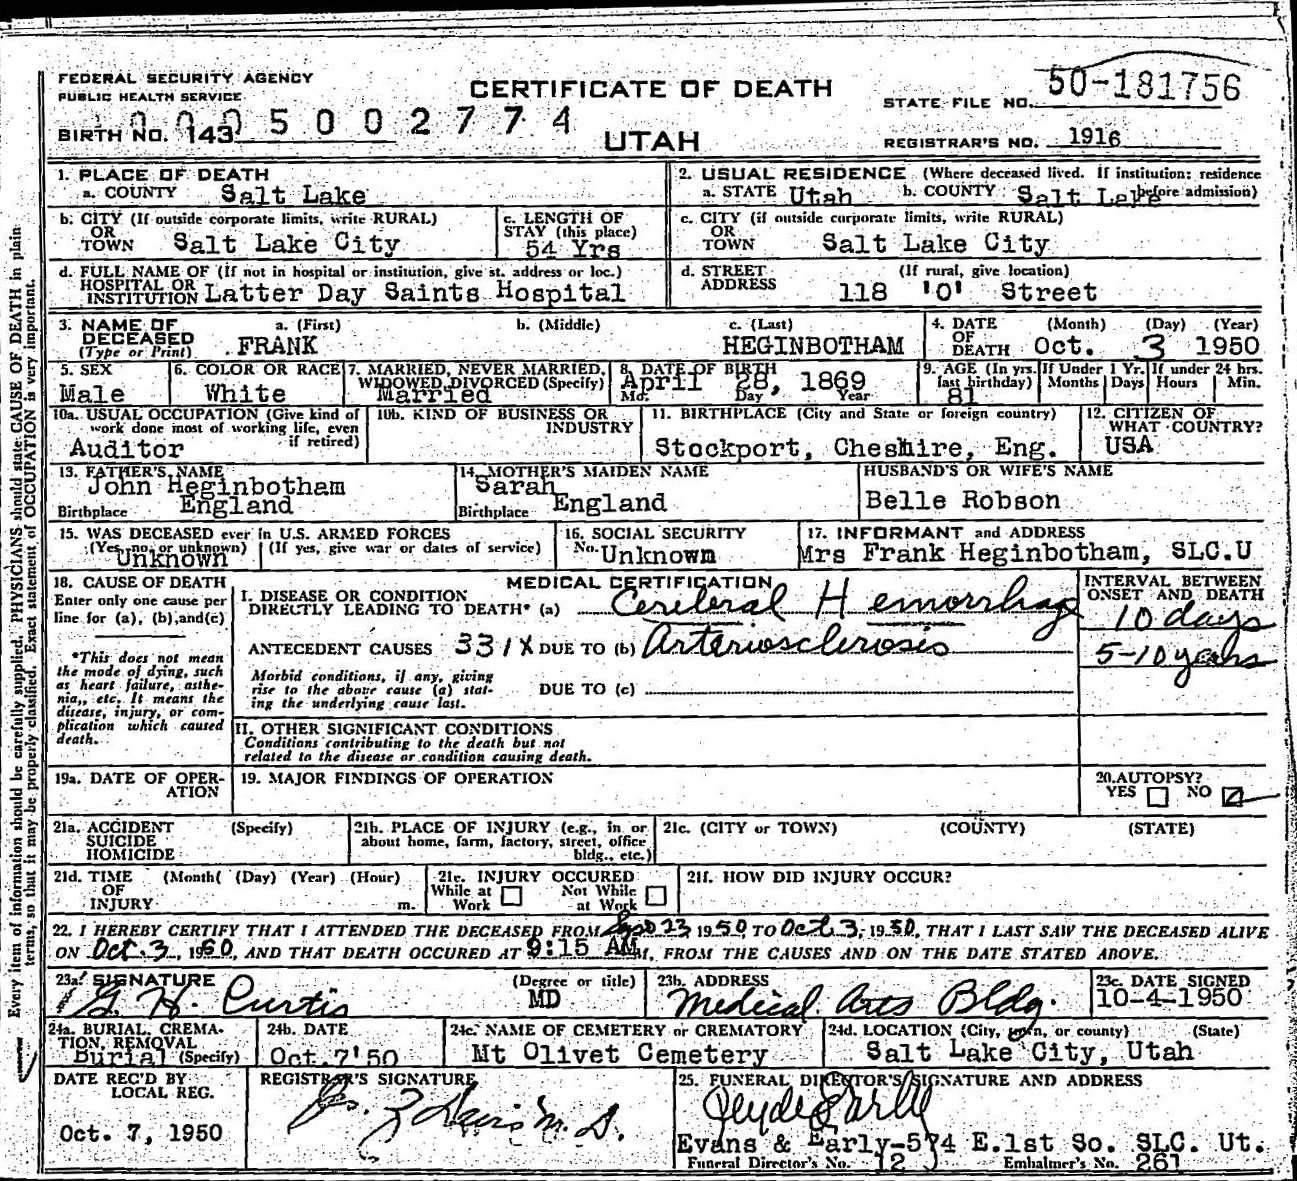 FEDERAL SECURITY AGENCY
PUBLIC HEALTH SERVICE
CERTIFICATE OF DEATH
STATE FILE NO. 50-181756
BIRTH NO. 143 0005002774
UTAH
REGISTRAR'S NO. 1916
1. PLACE OF DEATH
a. COUNTY Salt Lake
2. USUAL RESIDENCE (Where deceased lived. If institution: residence before admission)
a. STATE Utah b. COUNTY Salt Lake
b. CITY (If outside corporate limits, write RURAL)
OR
TOWN Salt Lake City
c. LENGTH OF
STAY (this place)
54 Yrs
c. CITY (if outside corporate limits, write RURAL)
OR
TOWN Salt Lake City
d. FULL NAME OF (If not in hospital or institution, give st. address or loc.)
HOSPITAL OR
INSTITUTION Latter Day Saints Hospital
d. STREET (If rural, give location)
ADDRESS 118 'O' Street
3. NAME OF a. (First) b. (Middle) c. (Last)
DECEASED
(Type or Print) FRANK HEGINBOTHAM
4. DATE (Month) (Day) (Year)
OF
DEATH Oct. 3 1950
5. SEX
Male
6. COLOR OR RACE
White
7. MARRIED, NEVER MARRIED,
WIDOWED DIVORCED (Specify)
Married
8. DATE OF BIRTH
April 28, 1869
Mo. Day Year
9. AGE (In yrs. last birthday)
81
If Under 1 Yr.
Months Days
If under 24 hrs.
Hours Min.
10a. USUAL OCCUPATION (Give kind of
work done most of working life, even
if retired)
Auditor
10b. KIND OF BUSINESS OR
INDUSTRY
11. BIRTHPLACE (City and State or foreign country)
Stockport, Cheshire, Eng.
12. CITIZEN OF
WHAT COUNTRY?
USA
13. FATHER'S NAME
John Heginbotham
Birthplace England
14. MOTHER'S MAIDEN NAME
Sarah
Birthplace England
HUSBAND'S OR WIFE'S NAME
Belle Robson
15. WAS DECEASED ever in U.S. ARMED FORCES
(Yes, no, or unknown) (If yes, give war or dates of service)
Unknown
16. SOCIAL SECURITY
No. Unknown
17. INFORMANT and ADDRESS
Mrs Frank Heginbotham, SLC.U
18. CAUSE OF DEATH
Enter only one cause per
line for (a), (b), and (c)
*This does not mean
the mode of dying, such
as heart failure, asthe-
nia,, etc. It means the
disease, injury, or com-
plication which caused
death.
MEDICAL CERTIFICATION
I. DISEASE OR CONDITION
DIRECTLY LEADING TO DEATH* (a) Cerebral Hemorrhage
ANTECEDENT CAUSES 331X DUE TO (b) Arteriosclerosis
Morbid conditions, if any, giving
rise to the above cause (a) stat-
ing the underlying cause last.
DUE TO (c)
INTERVAL BETWEEN
ONSET AND DEATH
10 days
5-10 years
II. OTHER SIGNIFICANT CONDITIONS
Conditions contributing to the death but not
related to the disease or condition causing death.
19a. DATE OF OPER-
ATION
19. MAJOR FINDINGS OF OPERATION
20. AUTOPSY?
YES NO
21a. ACCIDENT (Specify)
SUICIDE
HOMICIDE
21b. PLACE OF INJURY (e.g., in or
about home, farm, factory, street, office
bldg., etc.)
21c. (CITY or TOWN) (COUNTY) (STATE)
21d. TIME (Month( (Day) (Year) (Hour)
OF
INJURY m.
21e. INJURY OCCURED
While at Work Not While at Work
21f. HOW DID INJURY OCCUR?
22. I HEREBY CERTIFY THAT I ATTENDED THE DECEASED FROM 23 1950 TO Oct 3, 1950, THAT I LAST SAW THE DECEASED ALIVE
ON Oct. 3, 1950, AND THAT DEATH OCCURED AT 9:15 AM, FROM THE CAUSES AND ON THE DATE STATED ABOVE.
23a. SIGNATURE (Degree or title)
G. H. Curtis MD
23b. ADDRESS
Medical Arts Bldg.
23c. DATE SIGNED
10-4-1950
24a. BURIAL, CREMA-
TION, REMOVAL
Burial (Specify)
24b. DATE
Oct.7'50
24c. NAME OF CEMETERY or CREMATORY
Mt Olivet Cemetery
24d. LOCATION (City, town, or county) (State)
Salt Lake City, Utah
DATE REC'D BY
LOCAL REG.
Oct. 7, 1950
REGISTRAR'S SIGNATURE
M. D.
25. FUNERAL DIRECTOR'S SIGNATURE AND ADDRESS
Evans & Early-574 E.1st So. SLC. Ut.
Funeral Director's No. 12 Embalmer's No. 261
Every item of information should be carefully supplied. PHYSICIANS should state CAUSE OF DEATH in plain
terms, so that it may be properly classified. Exact statement of OCCUPATION is very important.